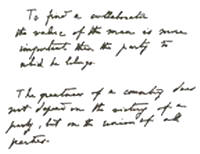 To find a collaborator
the value of the man is more
important than the party to
which he belongs.
The greatness of a country does
not depend on the victory of a
party, but on the union of all
parties.